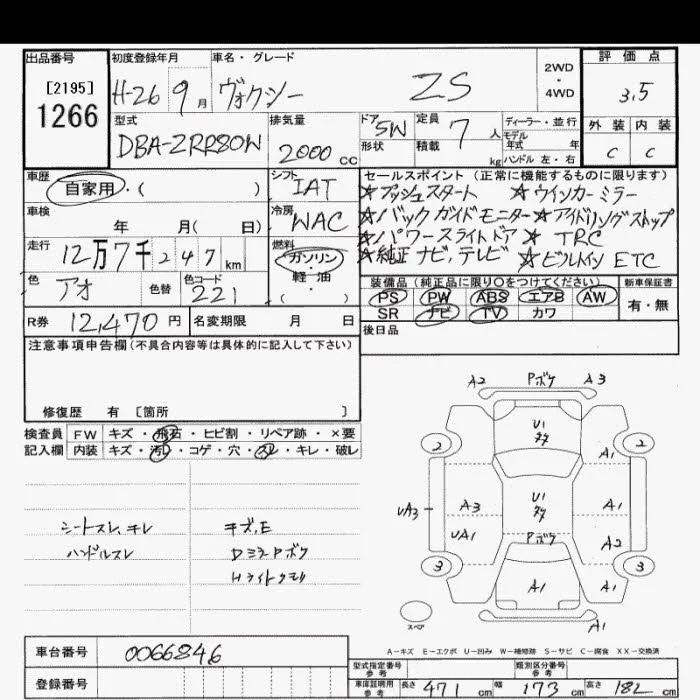 出品番号 初度登録年月 車名・グレード 2WD・4WD 評価点
[2195]
1266 H-26 9月 ヴォクシー ZS 3.5
型式 排気量 ドア 定員 ディーラー・並行 外装 内装
DBA-ZRR80W 2000cc 5W 7人 モデル年式 年 C C
形状 積載 kg ハンドル 左・右
車歴 シフト セールスポイント (正常に機能するものに限ります)
自家用・( ) IAT ☆プッシュスタート ☆ウインカーミラー
車検 冷房 ☆バックガイドモニター☆アイドリングストップ
年 月( 日) WAC ☆パワースライドドア ☆TRC
走行 燃料 ☆純正ナビ,テレビ ☆ビルトインETC
12万7千247km ガソリン・軽油・( )
色 色替 色コード 装備品(純正品に限り○をつけてください) 新車保証書
アオ 221 PS PW ABS エアB AW 有・無
SR ナビ TV カワ
R券 12,470円 名変期限 月 日 後日品
注意事項申告欄(不具合内容等は具体的に記入して下さい)
修復歴 有 [箇所 ]
検査員 FW キズ・飛石・ヒビ割・リペア跡・×要
記入欄 内装 キズ・汚れ・コゲ・穴・スレ・キレ・破レ
A2 Pボケ A3
U1
2 A1 2
A3 U1 A1
UA3
UA1 Pボケ A2
3 A1 A1 3
スペア A1
シートスレ,キレ キズ,E
ハンドルスレ DミラPボケ
Hライトクモリ
A-キズ E-エクボ U-凹み W-補修跡 S-サビ C-腐食 XX-交換済
車台番号 0066846
登録番号
型式指定番号参考 類別区分番号参考
車庫証明用参考 長さ 471cm 幅 173cm 高さ 182cm